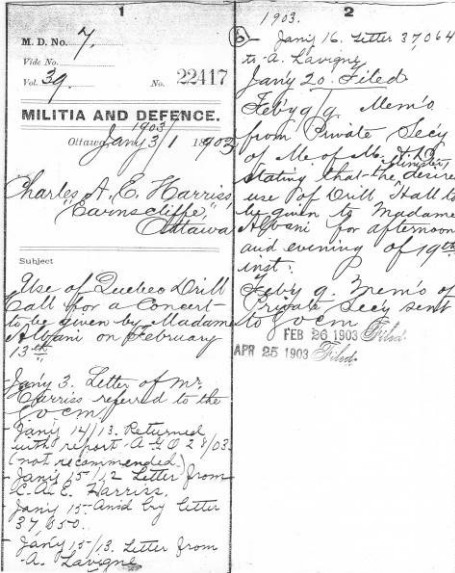 1
M. D. No. 7.
Vide No.
Vol. 39. No. 22417
MILITIA AND DEFENCE.
1903/
Ottawa Jany 3/1 1903
Charles A. E. Harriss,
"Earnscliffe,"
Ottawa
Subject
Use of Quebec Drill
Hall for a Concert
to be given by Madame
Albani on February
13th
Jany 3. Letter of Mr.
Harriss referred to the
G O C M
Jany 14/13. Returned
with report, A.G.O 28/03.
(not recommended.)
Jany 15/12 Letter from
C. A. E. Harriss.
Jany 15 - Ansd by letter
37,050.
Jany 15/13. Letter from
A. Lavigne
2
1903.
6 Jany 16. Letter 37,064
to A. Lavigne
Jany 20. Filed
Feby 9/9. Mem's
from Private Secy
of M. of M. & D.
stating that the Minister desires
use of Drill Hall to
be given to Madame
Albani for afternoon
and evening of 19th
inst:
Feby 9. Mem's of
Private Secy sent
to G O C M
FEB 26 1903 Filed.
APR 25 1903 Filed.